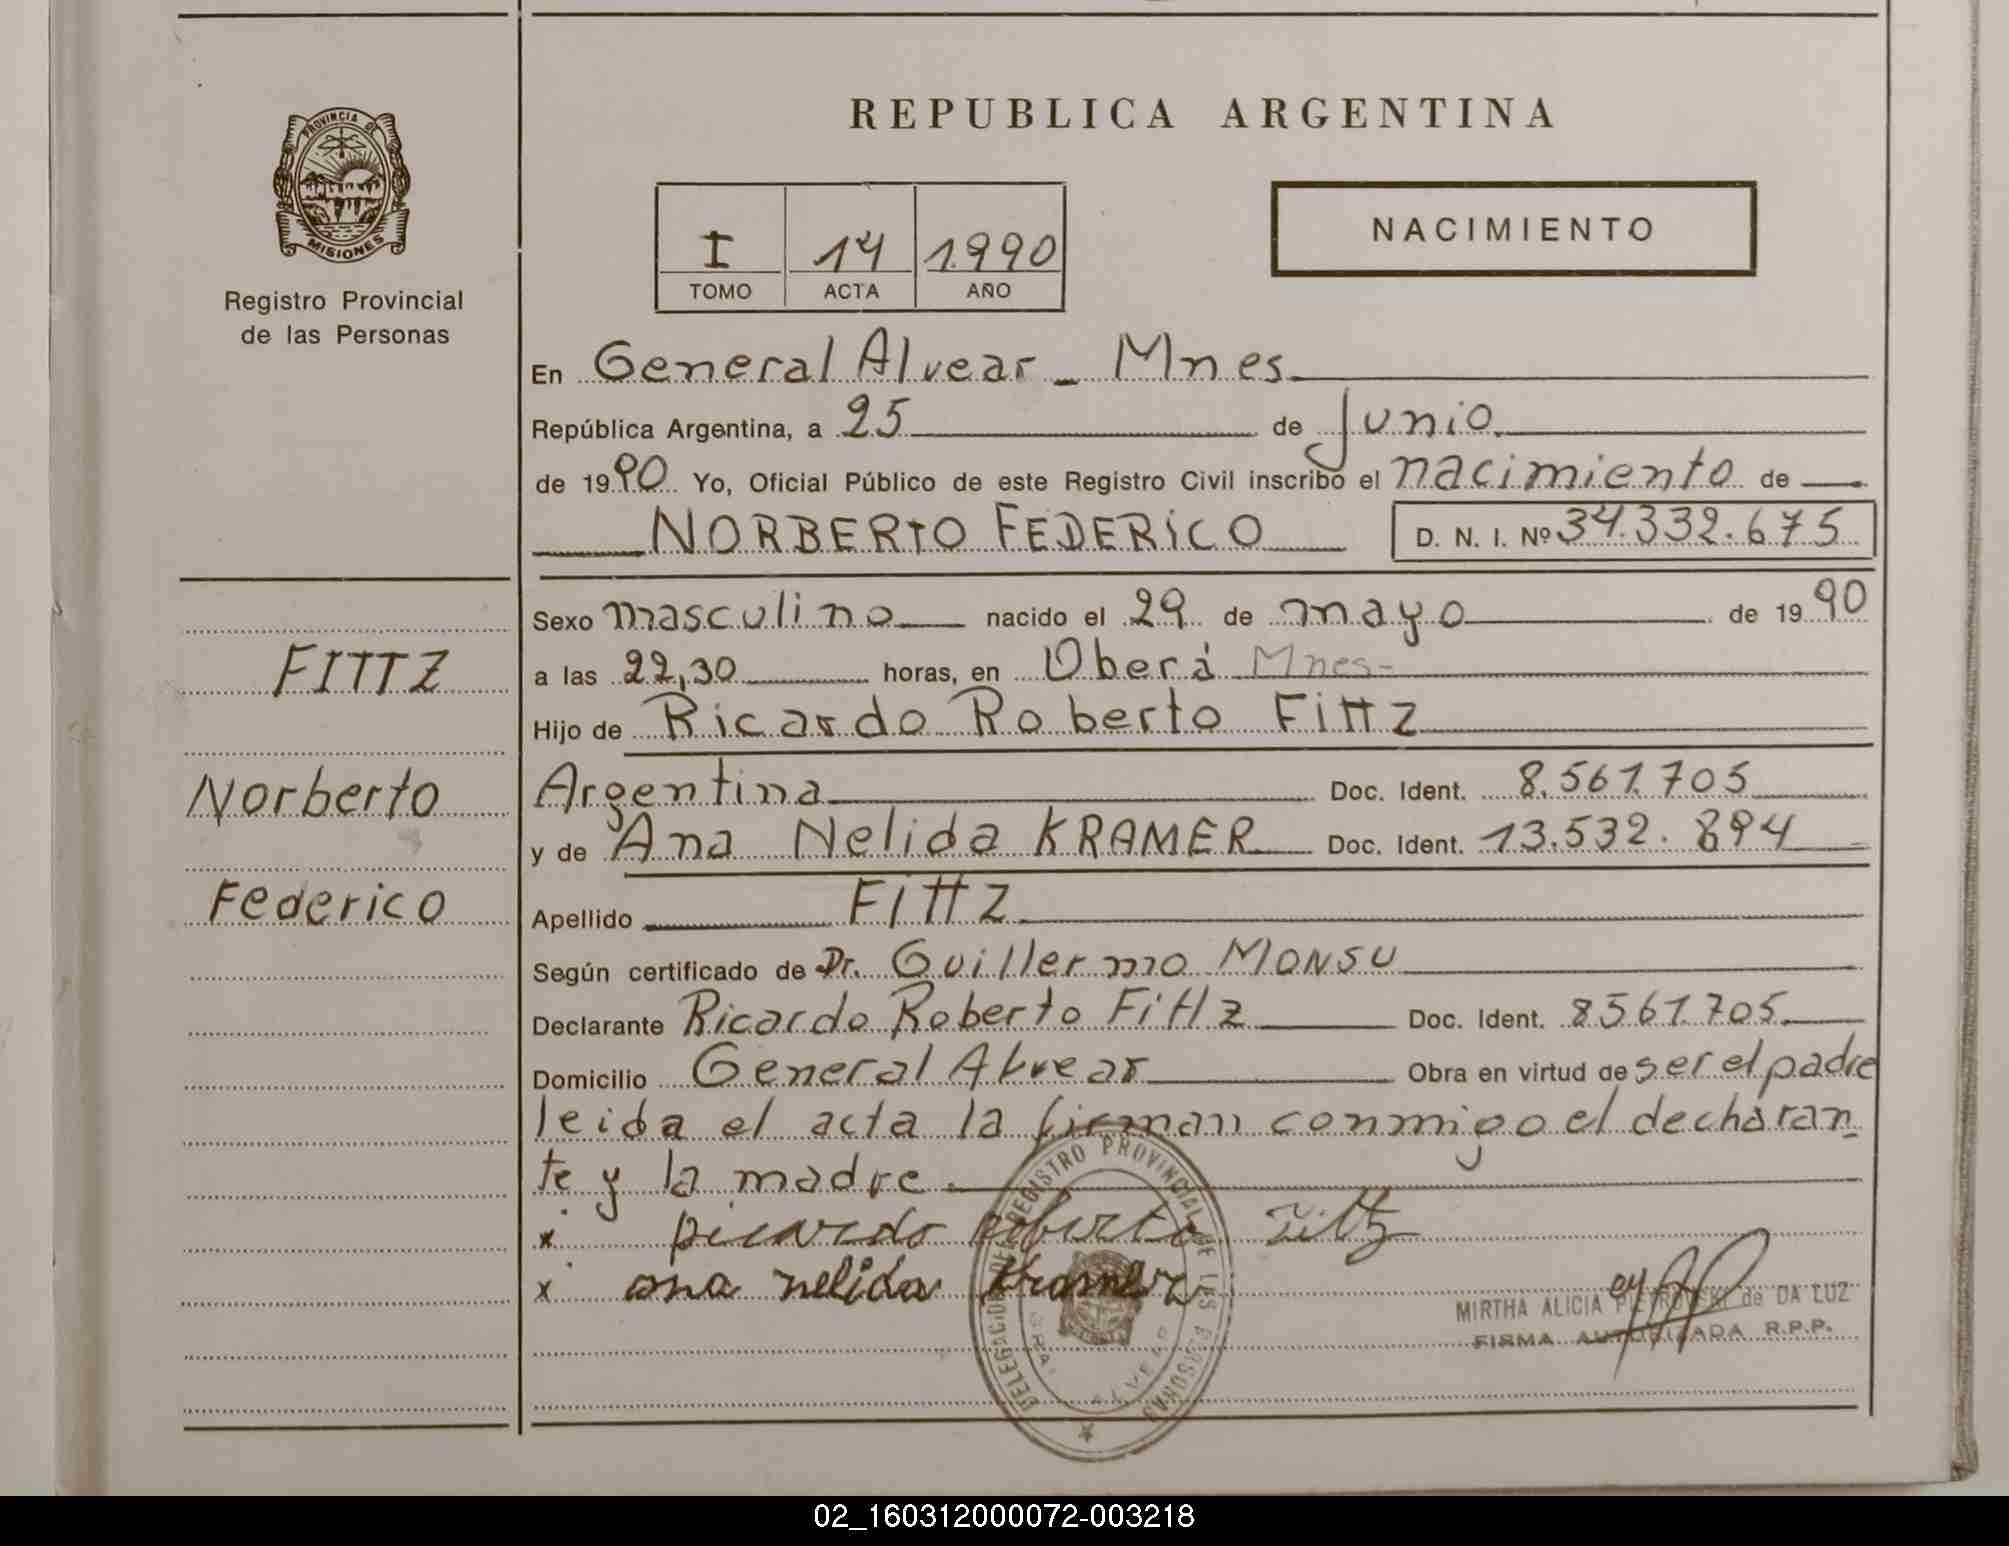 PROVINCIA DE
MISIONES
Registro Provincial
de las Personas
FITTZ
Norberto
Federico
REPUBLICA ARGENTINA
I 14 1990
TOMO ACTA AÑO
NACIMIENTO
En General Alvear - Mnes
República Argentina, a 25 de Junio
de 1990 Yo, Oficial Público de este Registro Civil inscribo el nacimiento de
NORBERTO FEDERICO D. N. I. Nº 34.332.675
Sexo masculino nacido el 29 de mayo de 1990
a las 22,30 horas, en Oberá Mnes-
Hijo de Ricardo Roberto Fittz
Argentina Doc. Ident. 8.561.705
y de Ana Nelida KRAMER Doc. Ident. 13.532.894
Apellido Fittz
Según certificado de Dr. Guillermo MONSU
Declarante Ricardo Roberto Fittz Doc. Ident. 8561.705
Domicilio General Alvear Obra en virtud de ser el padre
leida el acta la firman conmigo el declaran-
te y la madre.
x ricardo roberto Fittz
x ana nelida Kramer
DELEGACION DEL REGISTRO PROVINCIAL DE LAS PERSONAS
GRAL ALVEAR
MIRTHA ALICIA PIETROWSKI de DA LUZ
FIRMA AUTORIZADA R.P.P.
02_160312000072-003218